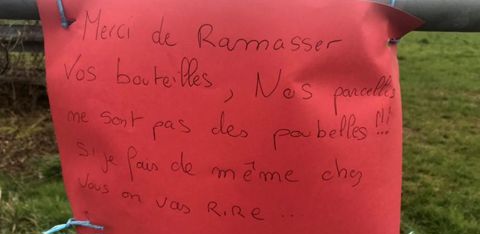 Merci de Ramasser
Vos bouteilles, Nos parcelles
ne sont pas des poubelles!!!
Si je fais de même chez
vous on vas RiRE...